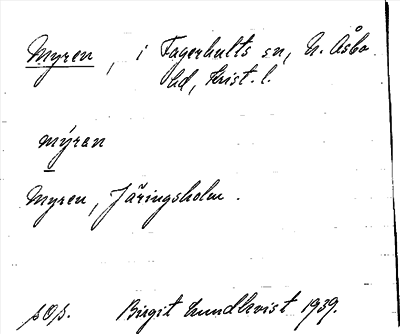 Myren, i Fagerhults sn, N. Åsbo
hd, Krist. l.
mýrɛn
Myren, Järingsholm.
sOs. Birgit Lundkvist 1939.